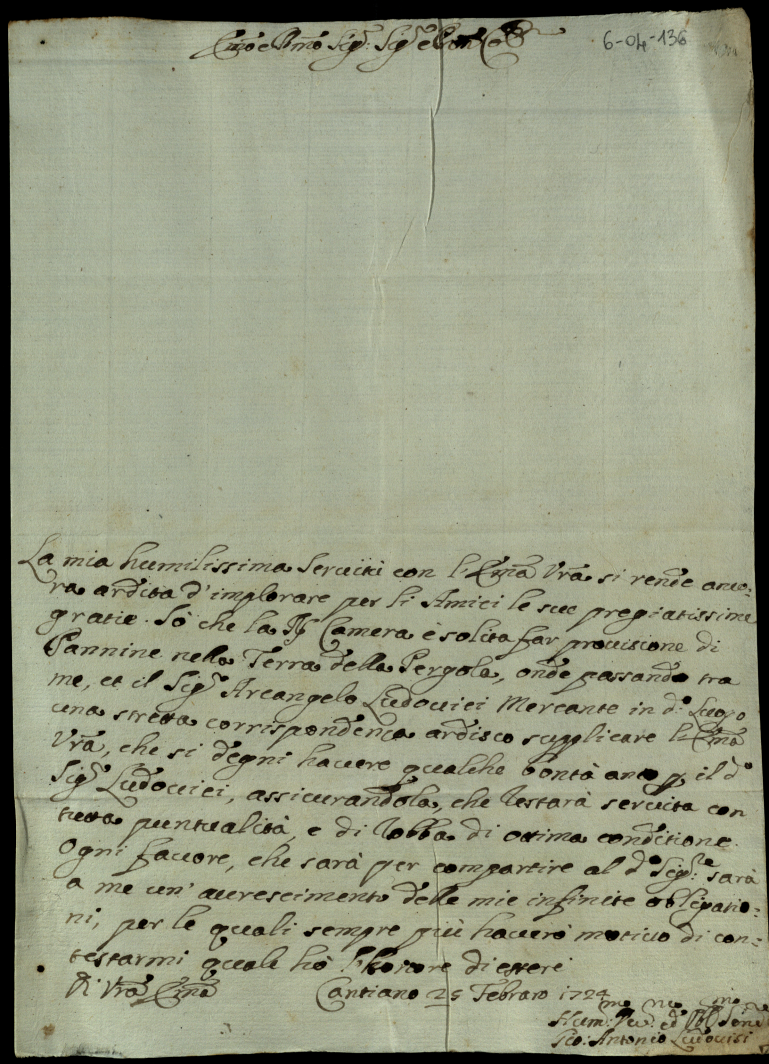 Em̃o e Rm̃o Sig:r Sig:r e Pron Col
6-04-136
La mia humilissima servitù con l'Em̃a Vrã si rende anco-
ra ardita d'implorare per li Amici le sue pregiatissime
gratie. Sò che la Camera è solita far provisione di
Pannine nella Terra della Pergola, onde passando tra
me, et il Sig:r Arcangelo Ludovici Mercante in d:o Luogo
una stretta corrispondenza ardisco supplicare l'Em̃a
Vrã, che si degni havere qualche bontà anco p il d:o
Sig:r Ludovici, assicurandola, che restarà servita con
tutta puntualità, e di robba di ottima conditione.
Ogni favore, che sarà per compartire al d:o Sig:re sarà
a me un' accrescimento delle mie infinite obligatio-
ni, per le quali sempre più haverò motivo di con-
testarmi quale hò l'honore di essere
Di Vrã Em̃a Cantiano 25 Febraro 1724
Hum:mo ed
Antonio Ludovisi